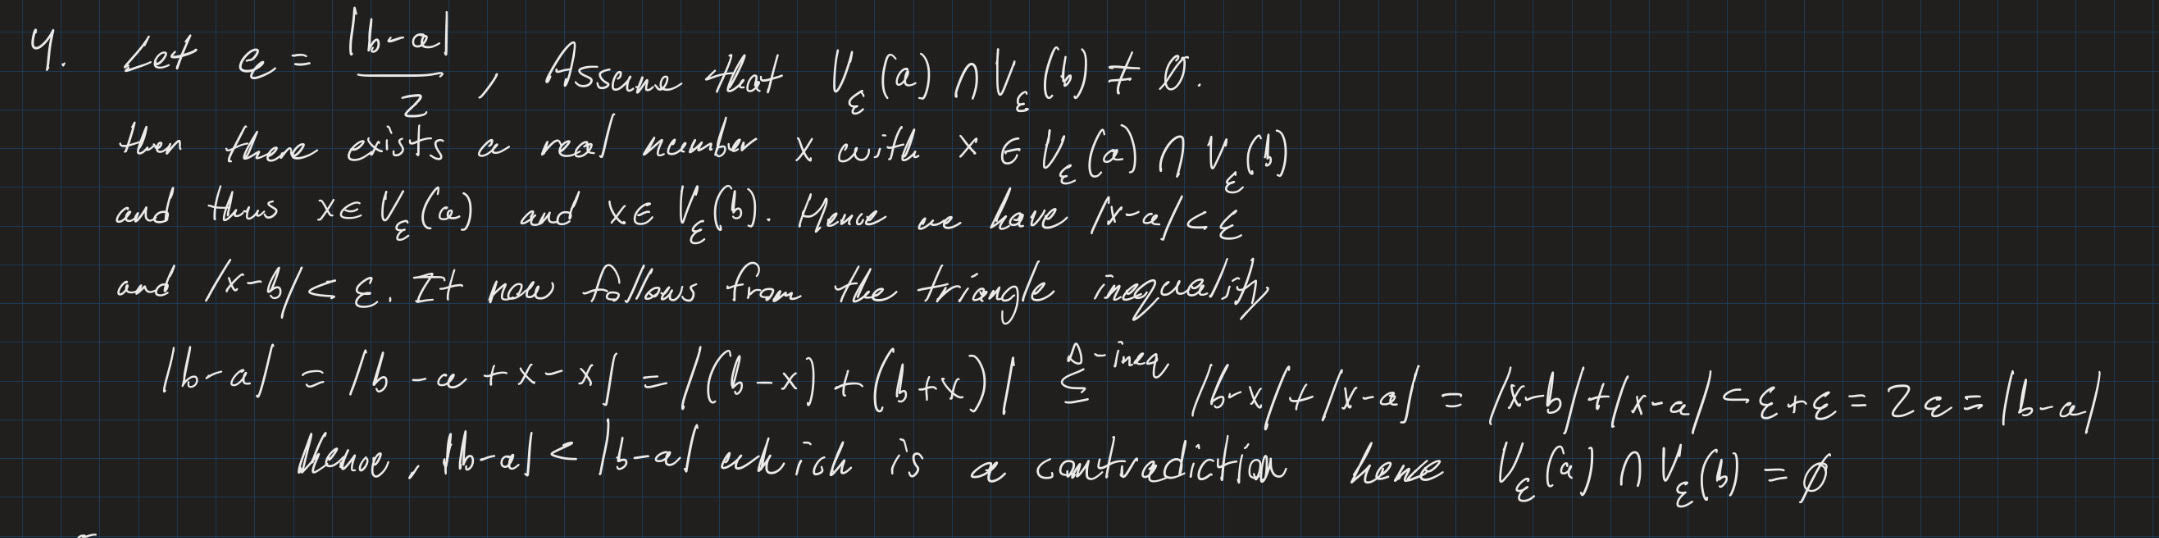 4. Let ε = |b-a|/2, Assume that V_ε(a) ∩ V_ε(b) ≠ ∅.
then there exists a real number x with x ∈ V_ε(a) ∩ V_ε(b)
and thus x ∈ V_ε(a) and x ∈ V_ε(b). Hence we have |x-a| < ε
and |x-b| < ε. It now follows from the triangle inequality
|b-a| = |b-a+x-x| = |(b-x)+(b+x)| ≤^{Δ-ineq} |b-x|+|x-a| = |x-b|+|x-a| < ε+ε = 2ε = |b-a|
Hence, |b-a| < |b-a| which is a contradiction hence V_ε(a) ∩ V_ε(b) = ∅